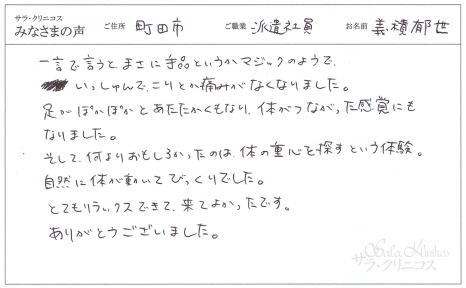 サラ・クリニコス
みなさまの声 ご住所 町田市 ご職業 派遣社員 お名前 義積郁世
一言で言うと、まさに手品というかマジックのようで、
いっしゅんで、こりとか痛みがなくなりました。
足がぽかぽかとあたたかくもなり、体がつながった感覚にも
なりました。
そして、何よりおもしろかったのは、体の重心を探すという体験。
自然に体が動いてびっくりでした。
とてもリラックスできて、来てよかったです。
ありがとうございました。
Sala Klinikos
サラ・クリニコス